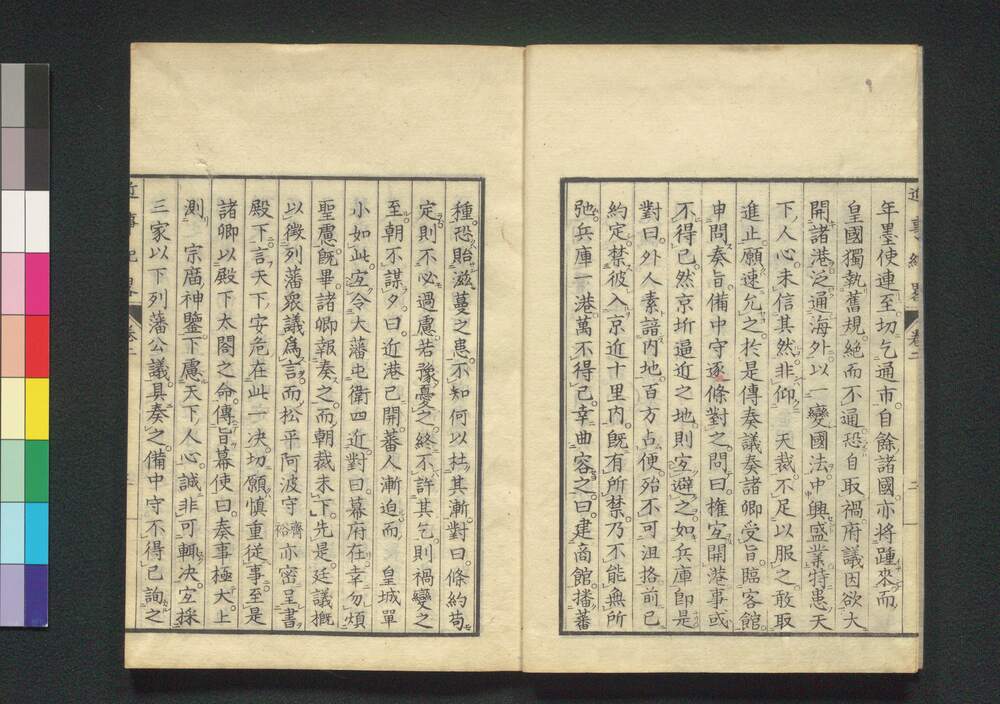 年墨使連至切乞通市自餘諸國亦將踵來而
皇國獨執舊規絶而不通恐自取禍府議因欲大
開諸港泛通海外以一變國法中興盛業特患天
下人心未信其然非仰 天裁不足以服之敢取
進止願速允之於是傳奏議奏諸卿受旨臨客館
申問奏旨備中守逐條對之問曰權宜開港事或
不得已然京圻逼近之地則宜避之如兵庫卽是
對曰外人素諳内地百方占便殆不可沮挌前已
約定禁彼入京近十里内既有所禁乃不能無所
弛兵庫一港萬不得已幸曲容之曰建商館播蕃
種恐貽滋蔓之患不知何以杜其漸對曰條約苟
定則不必過慮若豫憂之終不許其乞則禍變之
至朝不謀夕曰近港已開蕃人漸迫而 皇城單
小如此宜令大藩屯衛四近對曰幕府在幸勿煩
聖慮既畢諸卿報奏之而朝裁未下先是廷議概
以徴列藩衆議爲言而松平阿波守齊裕亦密呈書
殿下言天下安危在此一决切願慎重従事至是
諸卿以殿下太閤之命傳旨幕使曰奏事極大上
測 宗廟神鑒下慮天下人心誠非可輙决宜採
三家以下列藩公議具奏之備中守不得已詢之
近事紀畧 卷二 二
近事紀畧 卷二 三